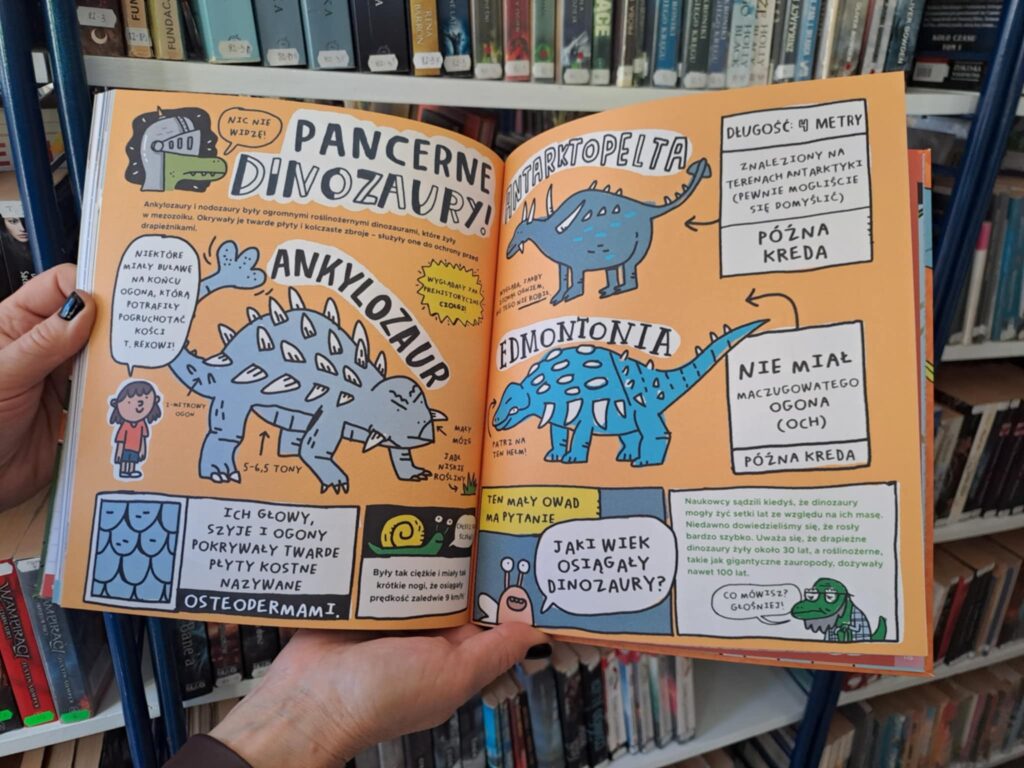 NIC NIE
WIDZĘ!
PANCERNE
DINOZAURY!
Ankylozaury i nodozaury były ogromnymi roślinożernymi dinozaurami, które żyły
w mezozoiku. Okrywały je twarde płyty i kolczaste zbroje – służyły one do ochrony przed
drapieżnikami.
NIEKTÓRE
MIAŁY BUŁAWĘ
NA KOŃCU
OGONA, KTÓRĄ
POTRAFIŁY
POGRUCHOTAĆ
KOŚCI
T. REXOWI!
ANKYLOZAUR
WYGLĄDAŁY JAK
PREHISTORYCZNE
CZOŁGI!
1-METROWY
OGON
5-6,5 TONY
MAŁY
MÓZG
JADŁ
NISKIE
ROŚLINY
ICH GŁOWY,
SZYJE I OGONY
POKRYWAŁY TWARDE
PŁYTY KOSTNE
NAZYWANE
OSTEODERMAMI.
Były tak ciężkie i miały tak
krótkie nogi, że osiągały
prędkość zaledwie 9 km/h!
ANTARKTOPELTA
DŁUGOŚĆ: 4 METRY
ZNALEZIONY NA
TERENACH ANTARKTYKI
(PEWNIE MOGLIŚCIE
SIĘ DOMYŚLIĆ)
PÓŹNA
KREDA
WYGLĄDA, JAKBY
OGNIEM,
TEGO NIE ROBIŁ
EDMONTONIA
PATRZ NA
TEN HEŁM!
NIE MIAŁ
MACZUGOWATEGO
OGONA
(OCH)
PÓŹNA KREDA
TEN MAŁY OWAD
MA PYTANIE
JAKI WIEK
OSIĄGAŁY
DINOZAURY?
Naukowcy sądzili kiedyś, że dinozaury
mogły żyć setki lat ze względu na ich masę.
Niedawno dowiedzieliśmy się, że rosły
bardzo szybko. Uważa się, że drapieżne
dinozaury żyły około 30 lat, a roślinożerne,
takie jak gigantyczne zauropody, dożywały
nawet 100 lat.
CO MÓWISZ?
GŁOŚNIEJ!